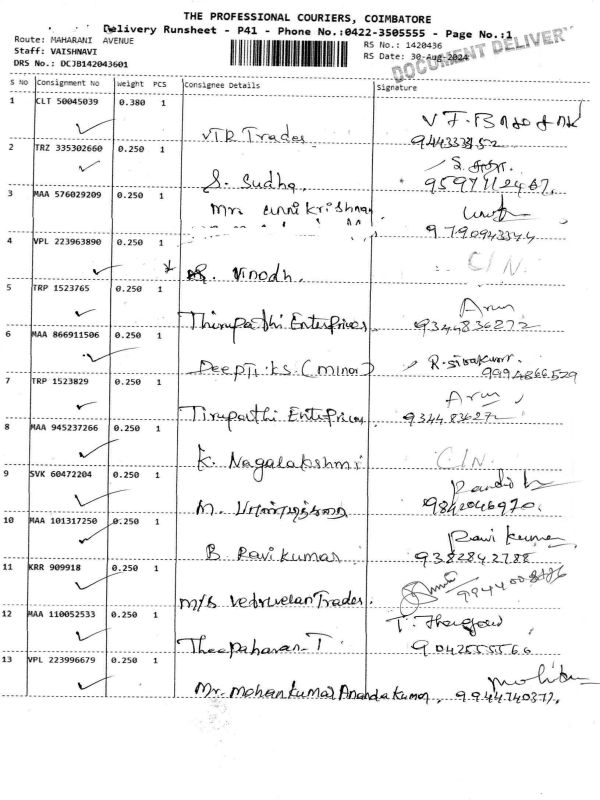 THE PROFESSIONAL COURIERS, COIMBATORE
Delivery Runsheet - P41 - Phone No.:0422-3505555 - Page No.:1
Route: MAHARANI AVENUE
RS No.: 1420436
DOCUMENT DELIVERY
Staff: VAISHNAVI
RS Date: 30-Aug-2024
DRS No.: DCJB142043601
S No Consignment No Weight PCS Consignee Details Signature
1 CLT 50045039 0.380 1
VTR Traders
2 TRZ 335302660 0.250 1
S. Sudha
3 MAA 576029209 0.250 1
Mrs unnikrishnan
9790943344
4 VPL 223963890 0.250 1
R. Vinodh. C/N.
5 TRP 1523765 0.250 1 Arun
Thirupathi Enterprises 9344836272
6 MAA 866911506 0.250 1
Deepti. K.S (Minor) R. Sivakumar
9994866529
7 TRP 1523829 0.250 1 Arun
Tirupathi Enterprises 9344836272
8 MAA 945237266 0.250 1
K. Nagalakshmi C/N.
9 SVK 60472204 0.250 1
M. 9842046970.
10 MAA 101317250 0.250 1 Ravi Kumar
B. Ravi Kumar 9382842788
11 KRR 909918 0.250 1
M/s Vetrivelan Traders.
12 MAA 110052533 0.250 1
Theepaharan. T 9042555566
13 VPL 223996679 0.250 1
Mr. Mohankumar Anandakumar, 9944740377.